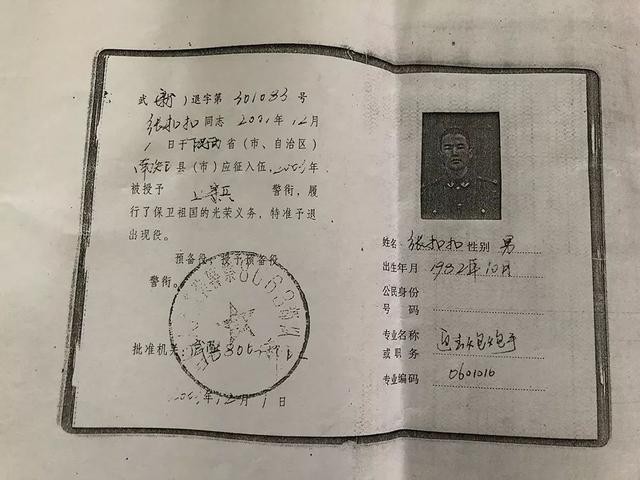 武(新)退字第301033号
张扣扣同志2001年12月
1日于陕西省(市、自治区)
南郑县(市)应征入伍，2003年
被授予上等兵警衔，履
行了保卫祖国的光荣义务，特准予退
出现役。
预备役：授予预备役
警衔。
批准机关：
年12月1日
姓名 张扣扣 性别 男
出生年月 1982年10月
公民身份
号码
专业名称 迫击炮炮手
或职务
专业编码 0601010